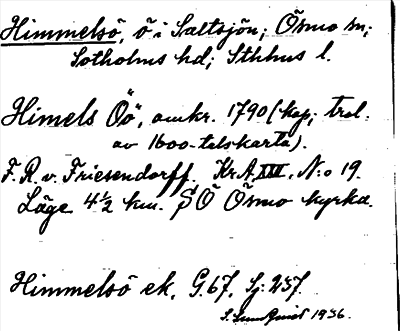 Himmelsö, ö i Saltsjön; Ösmo sn;
Sotholms hd; Sthlms l.
Himels Öö, omkr. 1790 (kop; trol.
av 1600-talskarta).
F. R. v. Friesendorff. Kr.A. XIII, N:o 19.
Läge 4½ km. SÖ Ösmo kyrka.
Himmelsö ek. G.67. Sj: 237.
S. Lundquist 1936.